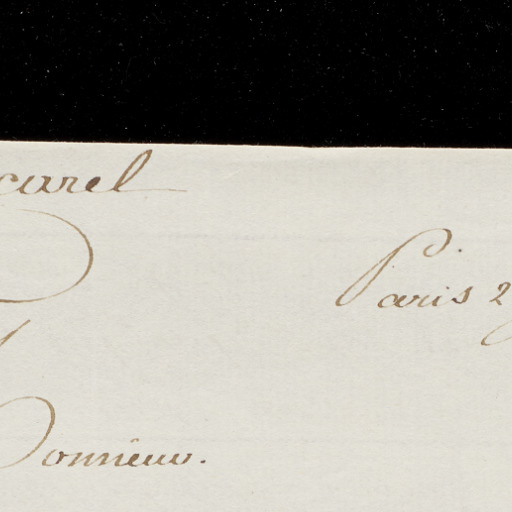 carel
Paris 2
Donnieuw.